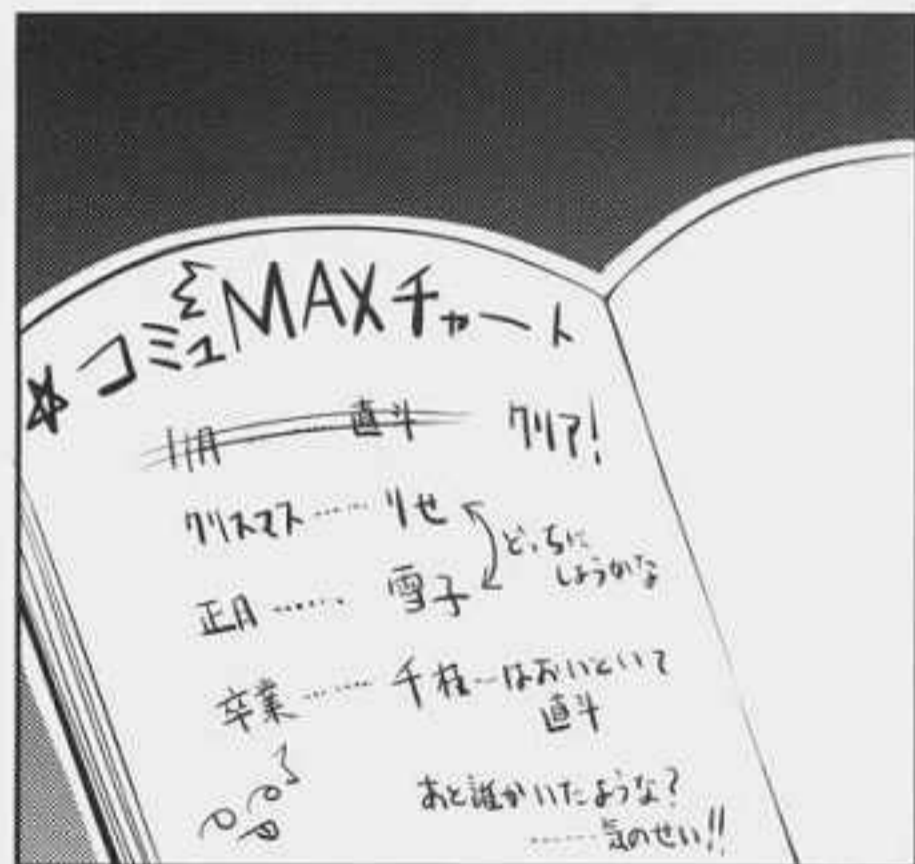 ☆コミュMAXチャート
11月……直斗 クリア!
クリスマス……りせ
どっちに
しようかな
正月……雪子
卒業……千枝…はおいといて
直斗
あと誰かいたような?
……気のせい!!